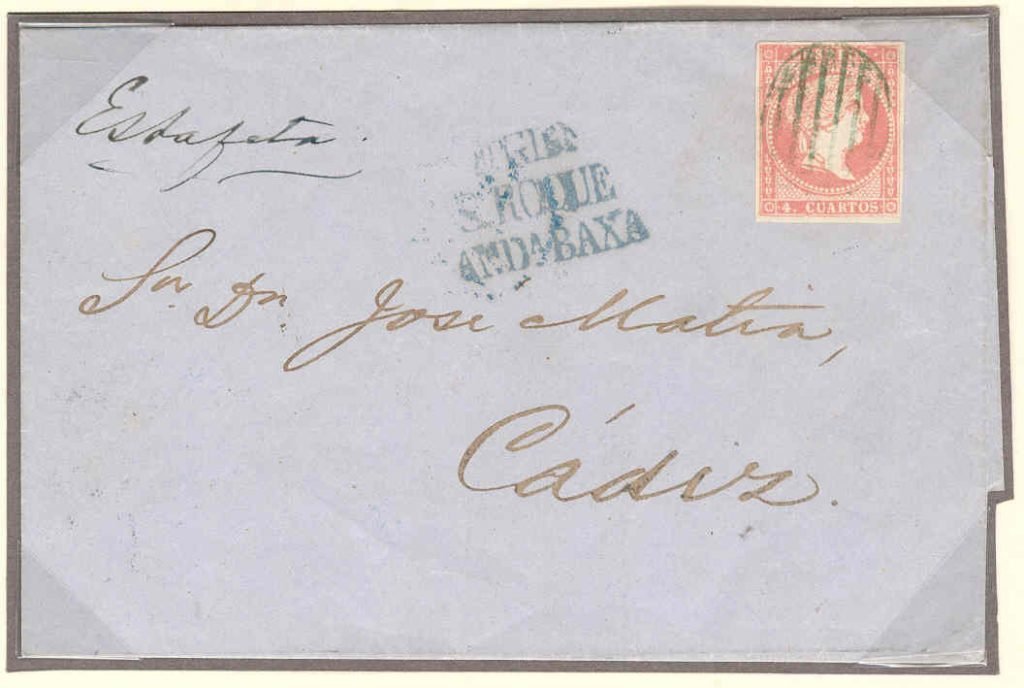 Estafeta.
S. ROQUE
ANDA BAXA
4. CUARTOS
Sr. Dn. Jose Matia,
Cádiz.